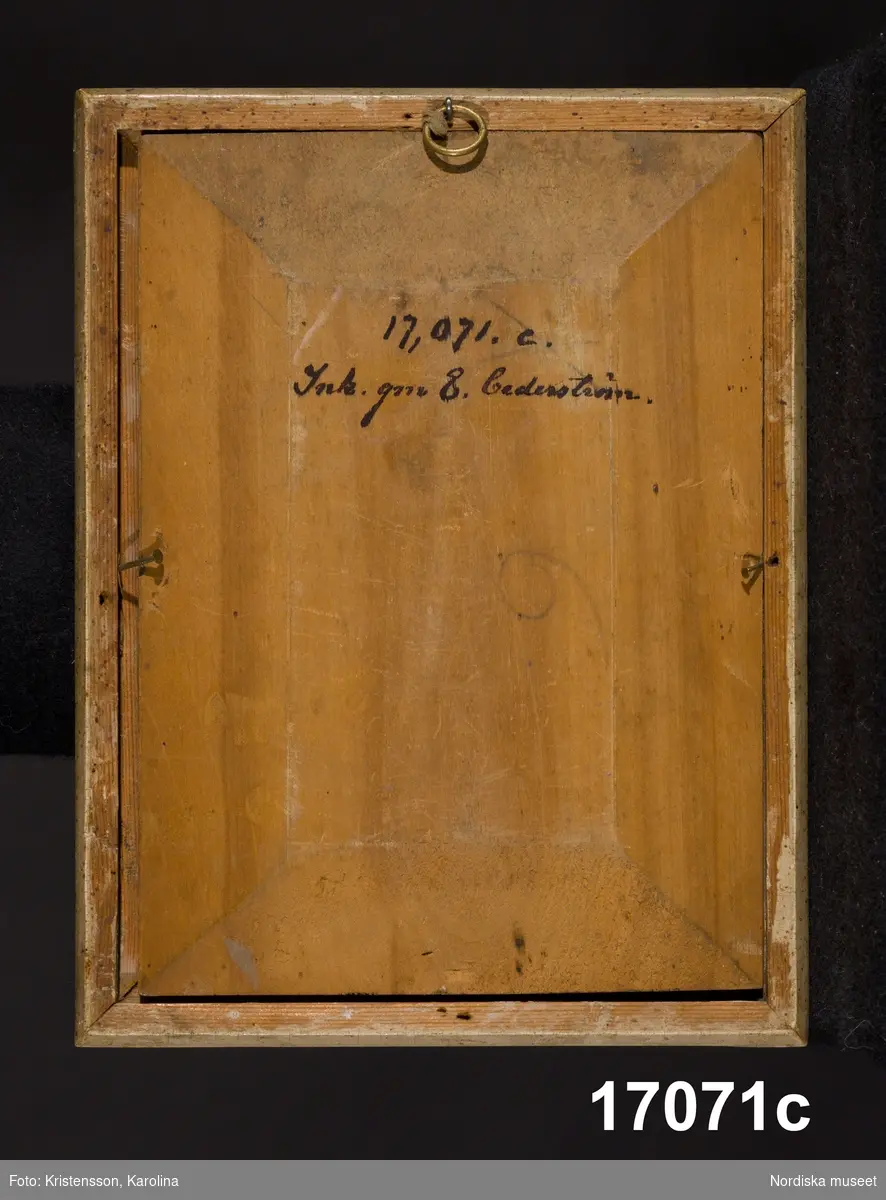 17,071. c.
Ink. gm E. Cederström.
17071c
Foto: Kristensson, Karolina
Nordiska museet